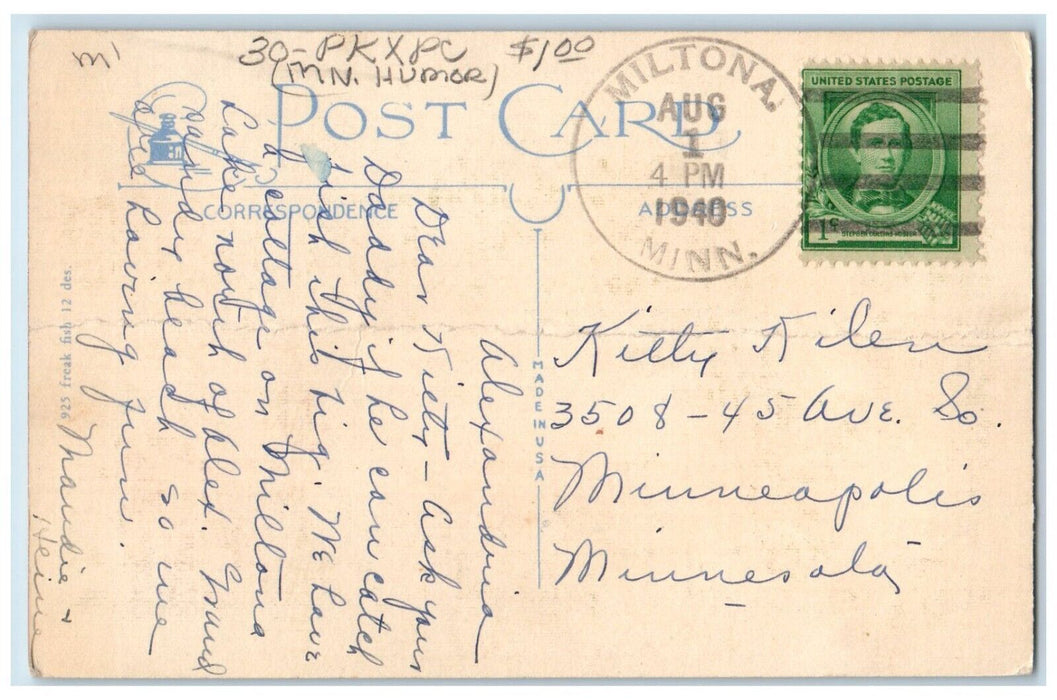 m
30-PKXPC $1.00
(MN. HUMOR)
POST CARD
CORRESPONDENCE
ADDRESS
MILTONA.
AUG
1
4 PM
1940
MINN.
UNITED STATES POSTAGE
1¢
STEPHEN COLLINS FOSTER
MADE IN USA
925 freak fish 12 des.
Alexandria
Dear Kitty - Ask your
Daddy if he can catch
fish this big. We have
a cottage on Miltona
Lake north of Alex. Grand
sandy beach so we
are having fun.
Maudie +
Heine
Kitty Kilen
3508-45 Ave. So.
Minneapolis
Minnesota